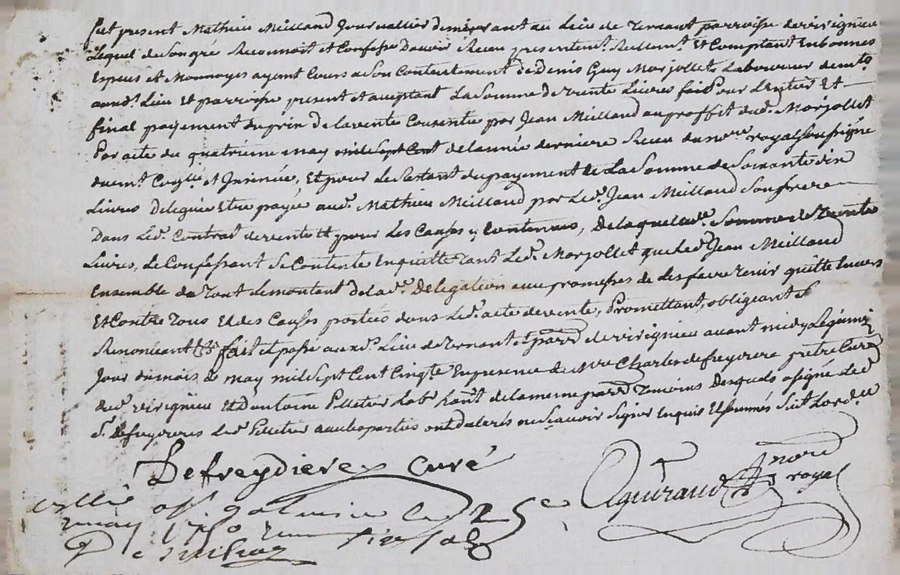 fut present Mathieu Meilland Journallier demeurant au Lieu de Ternant parroisse de virignieu
Lequel de Son gré Reconnoit et Confesse d'avoir Receu presentemt. Reellemt. Et Comptant En bonnes
Especes et Monnoyes ayant Cours a Son Contentement de Denis Guy Marjollet Laboureur demt.
aud. Lieu Et parroisse present et acceptant La Somme de Trente Livres fait pour L'entier Et
final payement du prix de la vente Consentie par Jean Meilland au proffit dud. Marjollet
Par acte du quatrieme may mil Sept Cent de lannée derniere Receu du nore. royal Soussigné
duemt. Conglé. et Insinué, Et pour le Restant du payement de La Somme de Soixante dix
Livres deleguée Etre payée aud. Mathieu Meilland par Led. Jean Meilland Son frere
Dans Led. Contrat de vente Et pour Les Causes y Contenues, de laquelle de. Somme de Trente
Livres, Le Confessant Se Contente En quitte tant Led. Marjollet que Led. Jean Meilland
Ensemble de Tout Le montant de la d. Delegation avec promesses de Les faire Tenir quitte Envers
Et Contre Tous Et des Causes portées dans Led. acte de vente, Promettant, obligeant &
Renonceant &. fait et passé aud. Lieu de Ternant parr. de virignieu avant midy Le
Jour du mois de may mil Sept Cent Cinqte. En presence de Mre Charles defreydiere prêtre Curé
dud. virignieu Et d'Antoine Pelletier Labr. hant. de la meme parr. Temoins desquels a Signé Led.
Sr. defreydiere Led. Pelletier avec les parties ont declarés ne Scavoir Signer Enquis Et Sommés Suivt. Lord.ce
Defreydiere Curé
nore
royal
may 1750